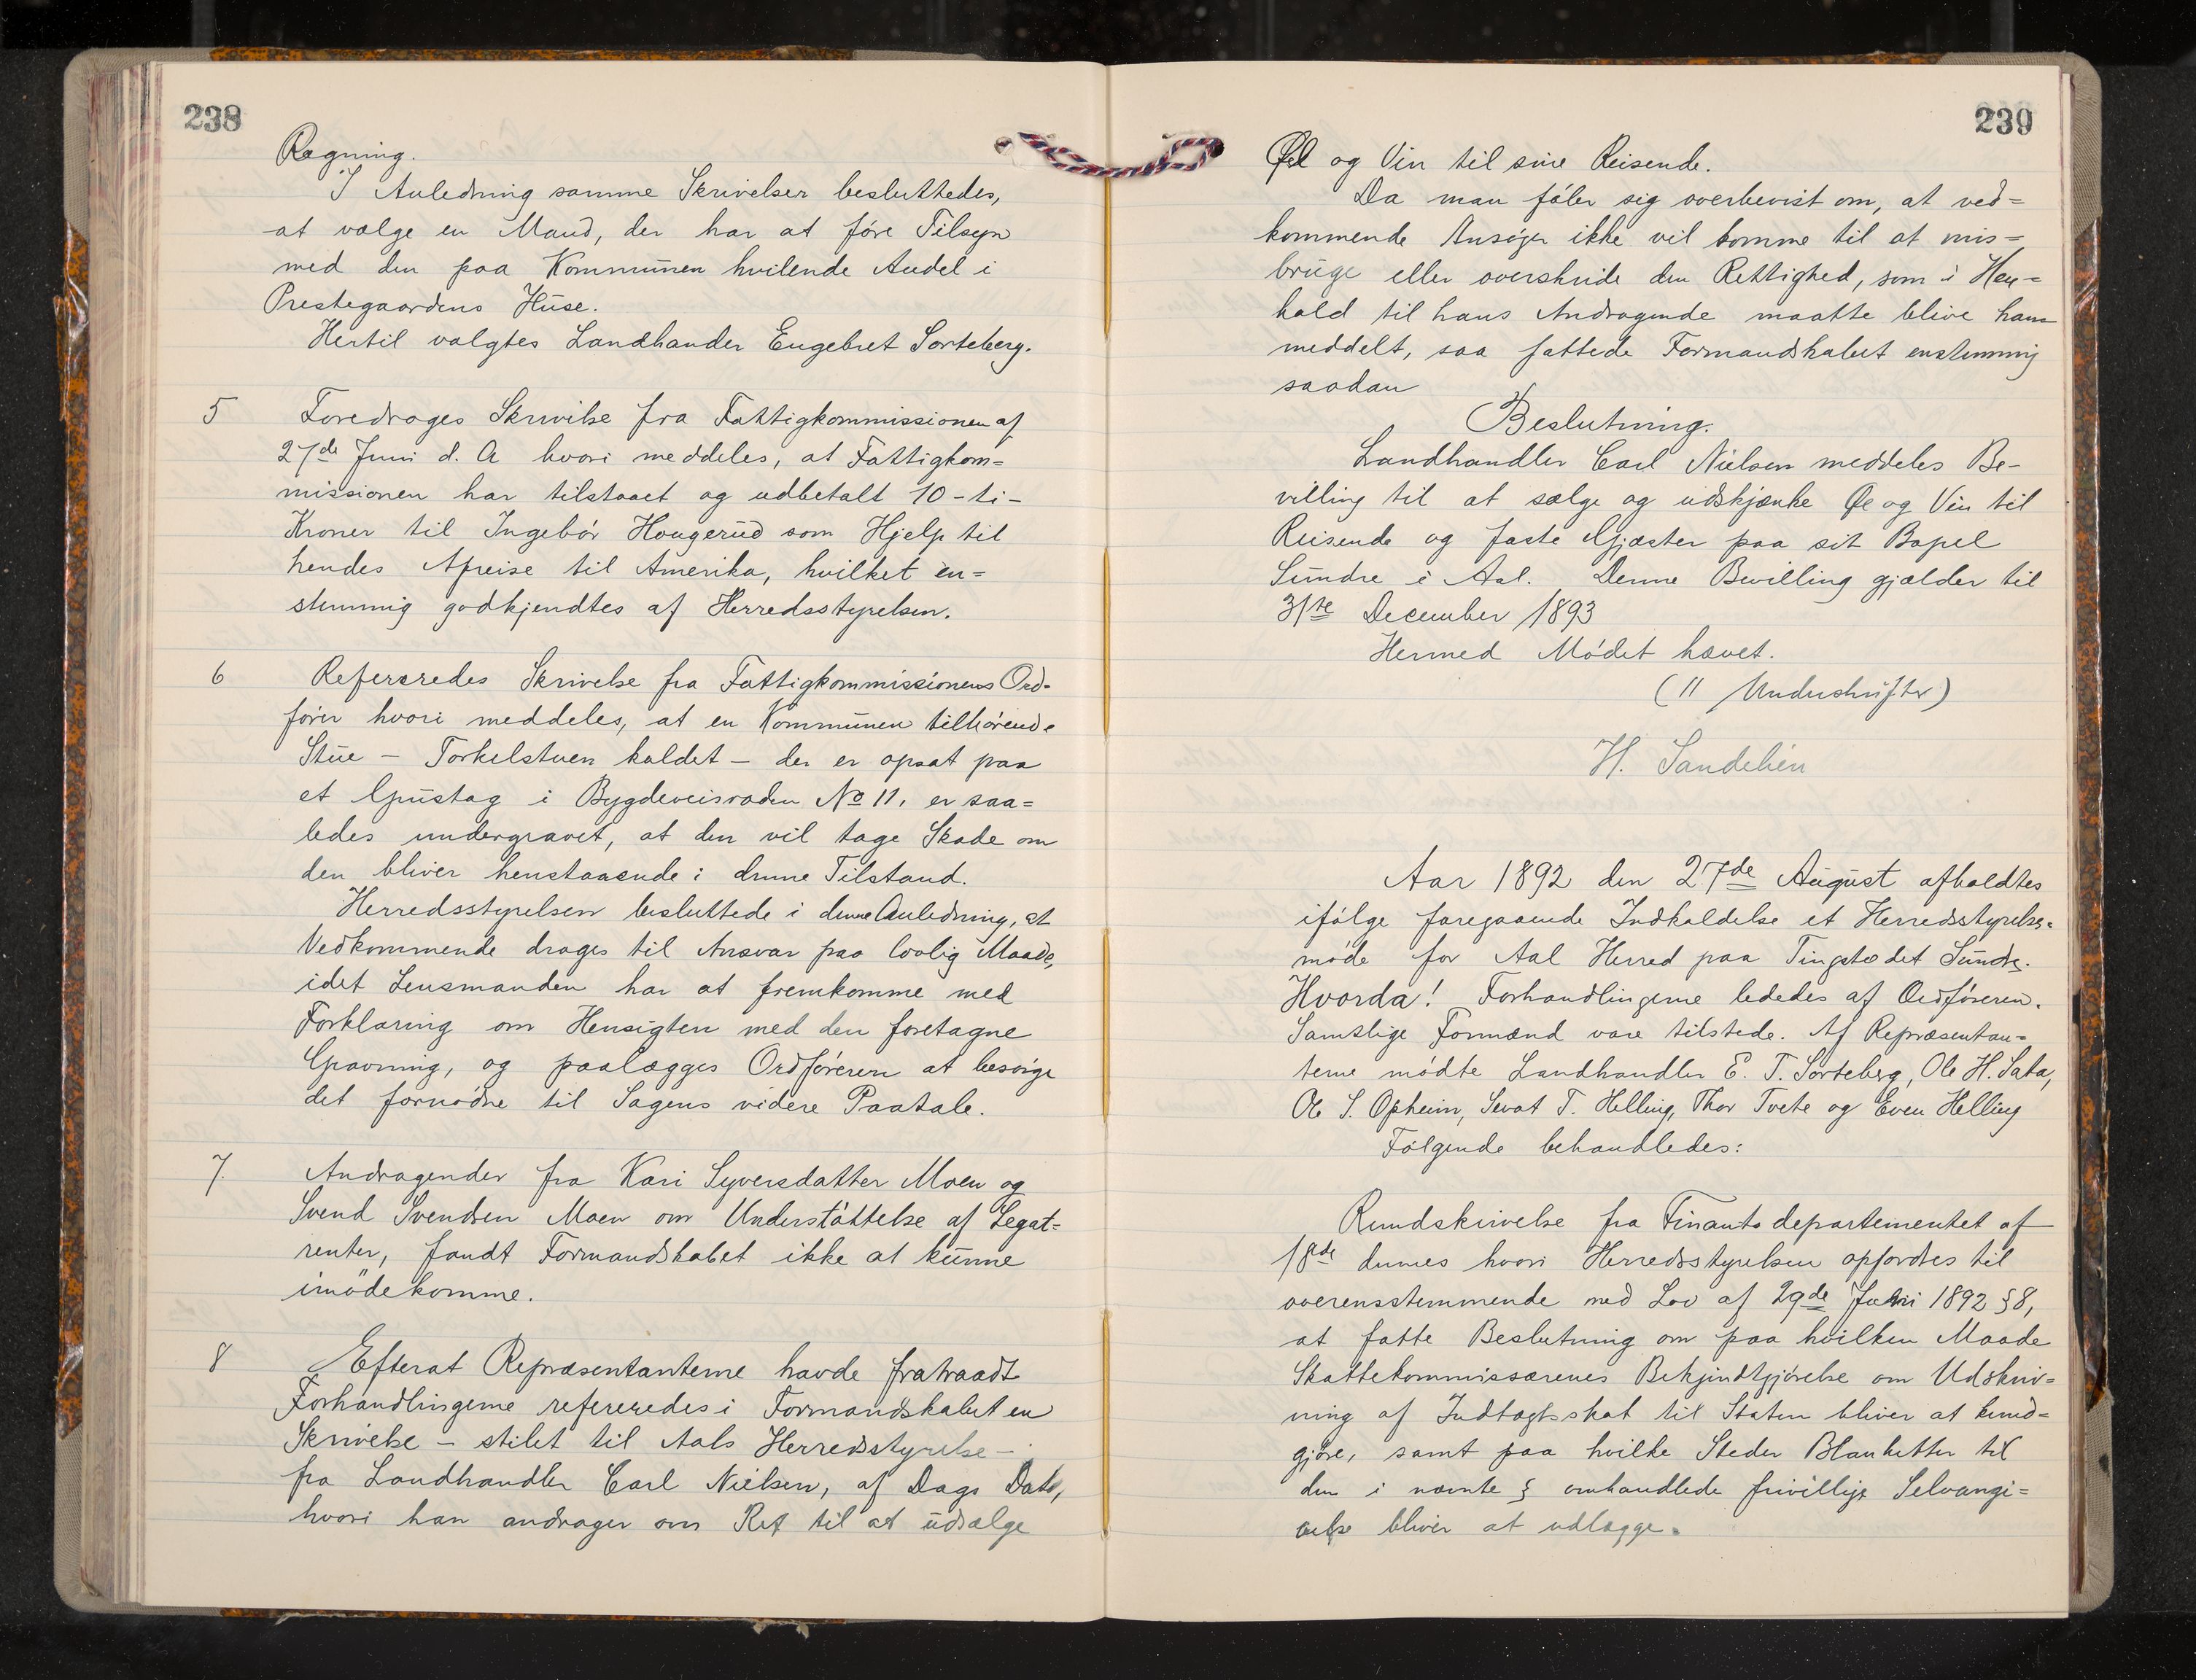 238
Rægning.
I Anledning samme Skrivelser besluttedes,
at vælge en Mand, der har at føre Tilsyn
med den paa Kommunen hvilende Andel i
Prestegaardens Huse.
Hertil valgtes Landhander Engebret Sorteberg.
5 Foredroges Skrivelse fra Fattigkommissionen af
27de Juni d. A hvori meddeles, at Fattigkom=
missionen har tilstaaet og udbetalt 10 - ti -
Kroner til Ingebór Hougerud som Hjelp til
hendes Afreise til Amerika, hvilket en=
stemmig godkjendtes af Herredsstyrelsen.
6 Refereredes Skrivelse fra Fattigkommissionens Ord=
fører hvori meddeles, at en Kommunen tilhørende
Stue - Torkelstuen kaldet - der er opsat paa
et Grustag i Bygdeveisroden No 11, er saa=
ledes undergravet, at den vil tage Skade om
den bliver henstaaende i denne Tilstand.
Herredsstyrelsen besluttede i denne Anledning, at
Vedkommende drages til Ansvar paa lovlig Maade,
idet Lensmanden har at fremkomme med
Forklaring om Hensigten med den foretagne
Gravning, og paalægges Ordføreren at besørge
det fornødne til Sagens videre Paatale.
7. Andragender fra Kari Syversdatter Moen og
Svend Svendsen Moen om Understøttelse af Legat=
renter, fandt Formandskabet ikke at kunne
imødekomme.
8 Efterat Repræsentanterne havde fratraadt
Forhandlingerne refereredes i Formandskabet en
Skrivelse - stilet til Aals Herredsstyrelse -
fra Landhandler Carl Nielsen, af Dags Dato,
hvori han andrager om Ret til at udsælge
239
Øl og Vin til sine Reisende.
Da man føler sig overbevist om, at ved=
kommende Ansøger ikke vil komme til at mis=
bruge eller overskride den Rettighed, som i Hen=
hold til hans Andragende maatte blive ham
meddelt, saa fattede Formandskabet enstemmig
saadan
Beslutning.
Landhandler Carl Nielsen meddeles Be-
villing til at sælge og udskjænke Øl og Vin til
Reisende og faste Gjæster paa sit Bopel
Sundre i Aal. Denne Bevilling gjælder til
31te December 1893
Hermed Mødet hævet.
(11 Underskrifter)
H. Sandelien
Aar 1892 den 27de August afholdtes
ifølge foregaaende Indkaldelse et Herredsstyrelses=
møde for Aal Herred paa Tingstedet Sundre.
Hvorda! Forhandlingerne lededes af Ordføreren.
Samtlige Formænd vare tilstede. Af Repræsentan=
terne mødte Landhandler E. T. Sorteberg, Ole H. Sata,
Ole S. Opheim, Sevat T. Helling, Thor Tvete og Even Helling
Følgende behandledes:
Rundskrivelse fra Finantsdepartementet af
18de dennes hvori Herredsstyrelsen opfordres til
overensstemmende med Lov af 29de Juni 1892 § 8,
at fatte Beslutning om paa hvilken Maade
Skattekommissærenes Bekjendtgjørelse om Udskriv=
ning af Indtægtsskat til Staten bliver at kund=
gjøre, samt paa hvilke Steder Blanketter til
den i nævnte § omhandlede frivillige Selvangi=
velse bliver at udlægge.